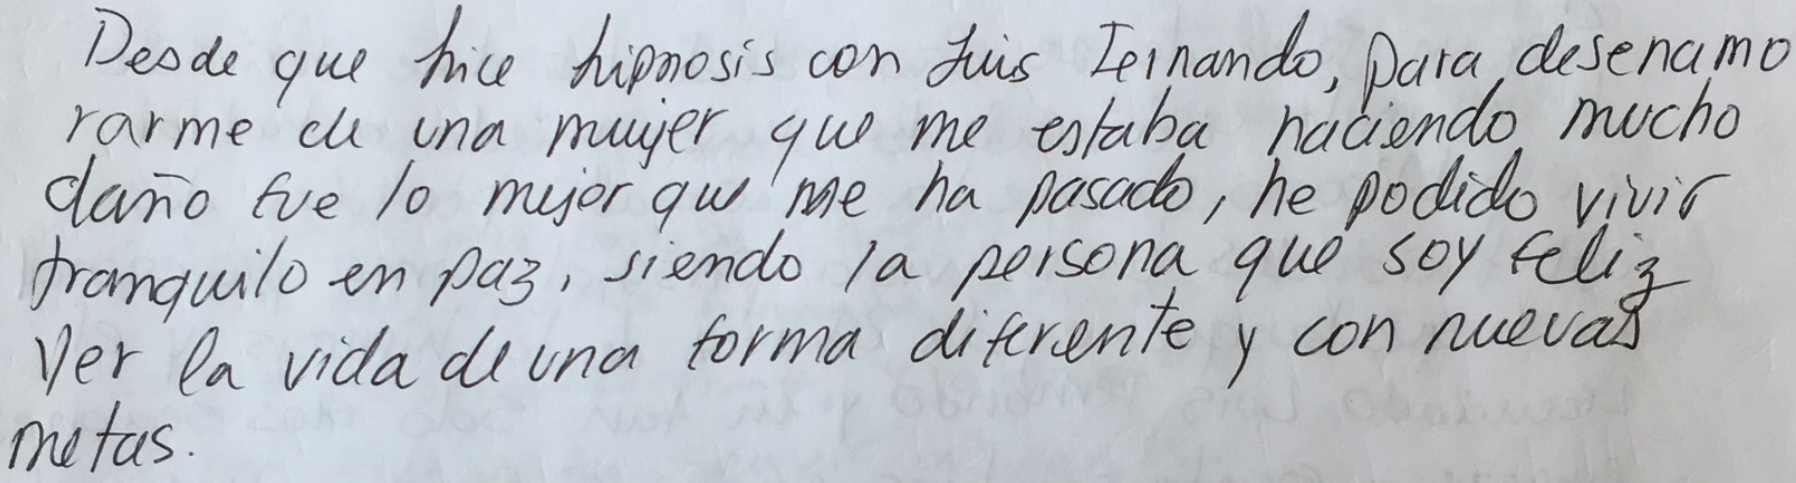 Desde que hice hipnosis con Luis Fernando, para desenamo
rarme de una mujer que me estaba haciendo mucho
daño fue lo mejor que me ha pasado, he podido vivir
tranquilo en paz, siendo la persona que soy feliz
Ver la vida de una forma diferente y con nuevas
metas.